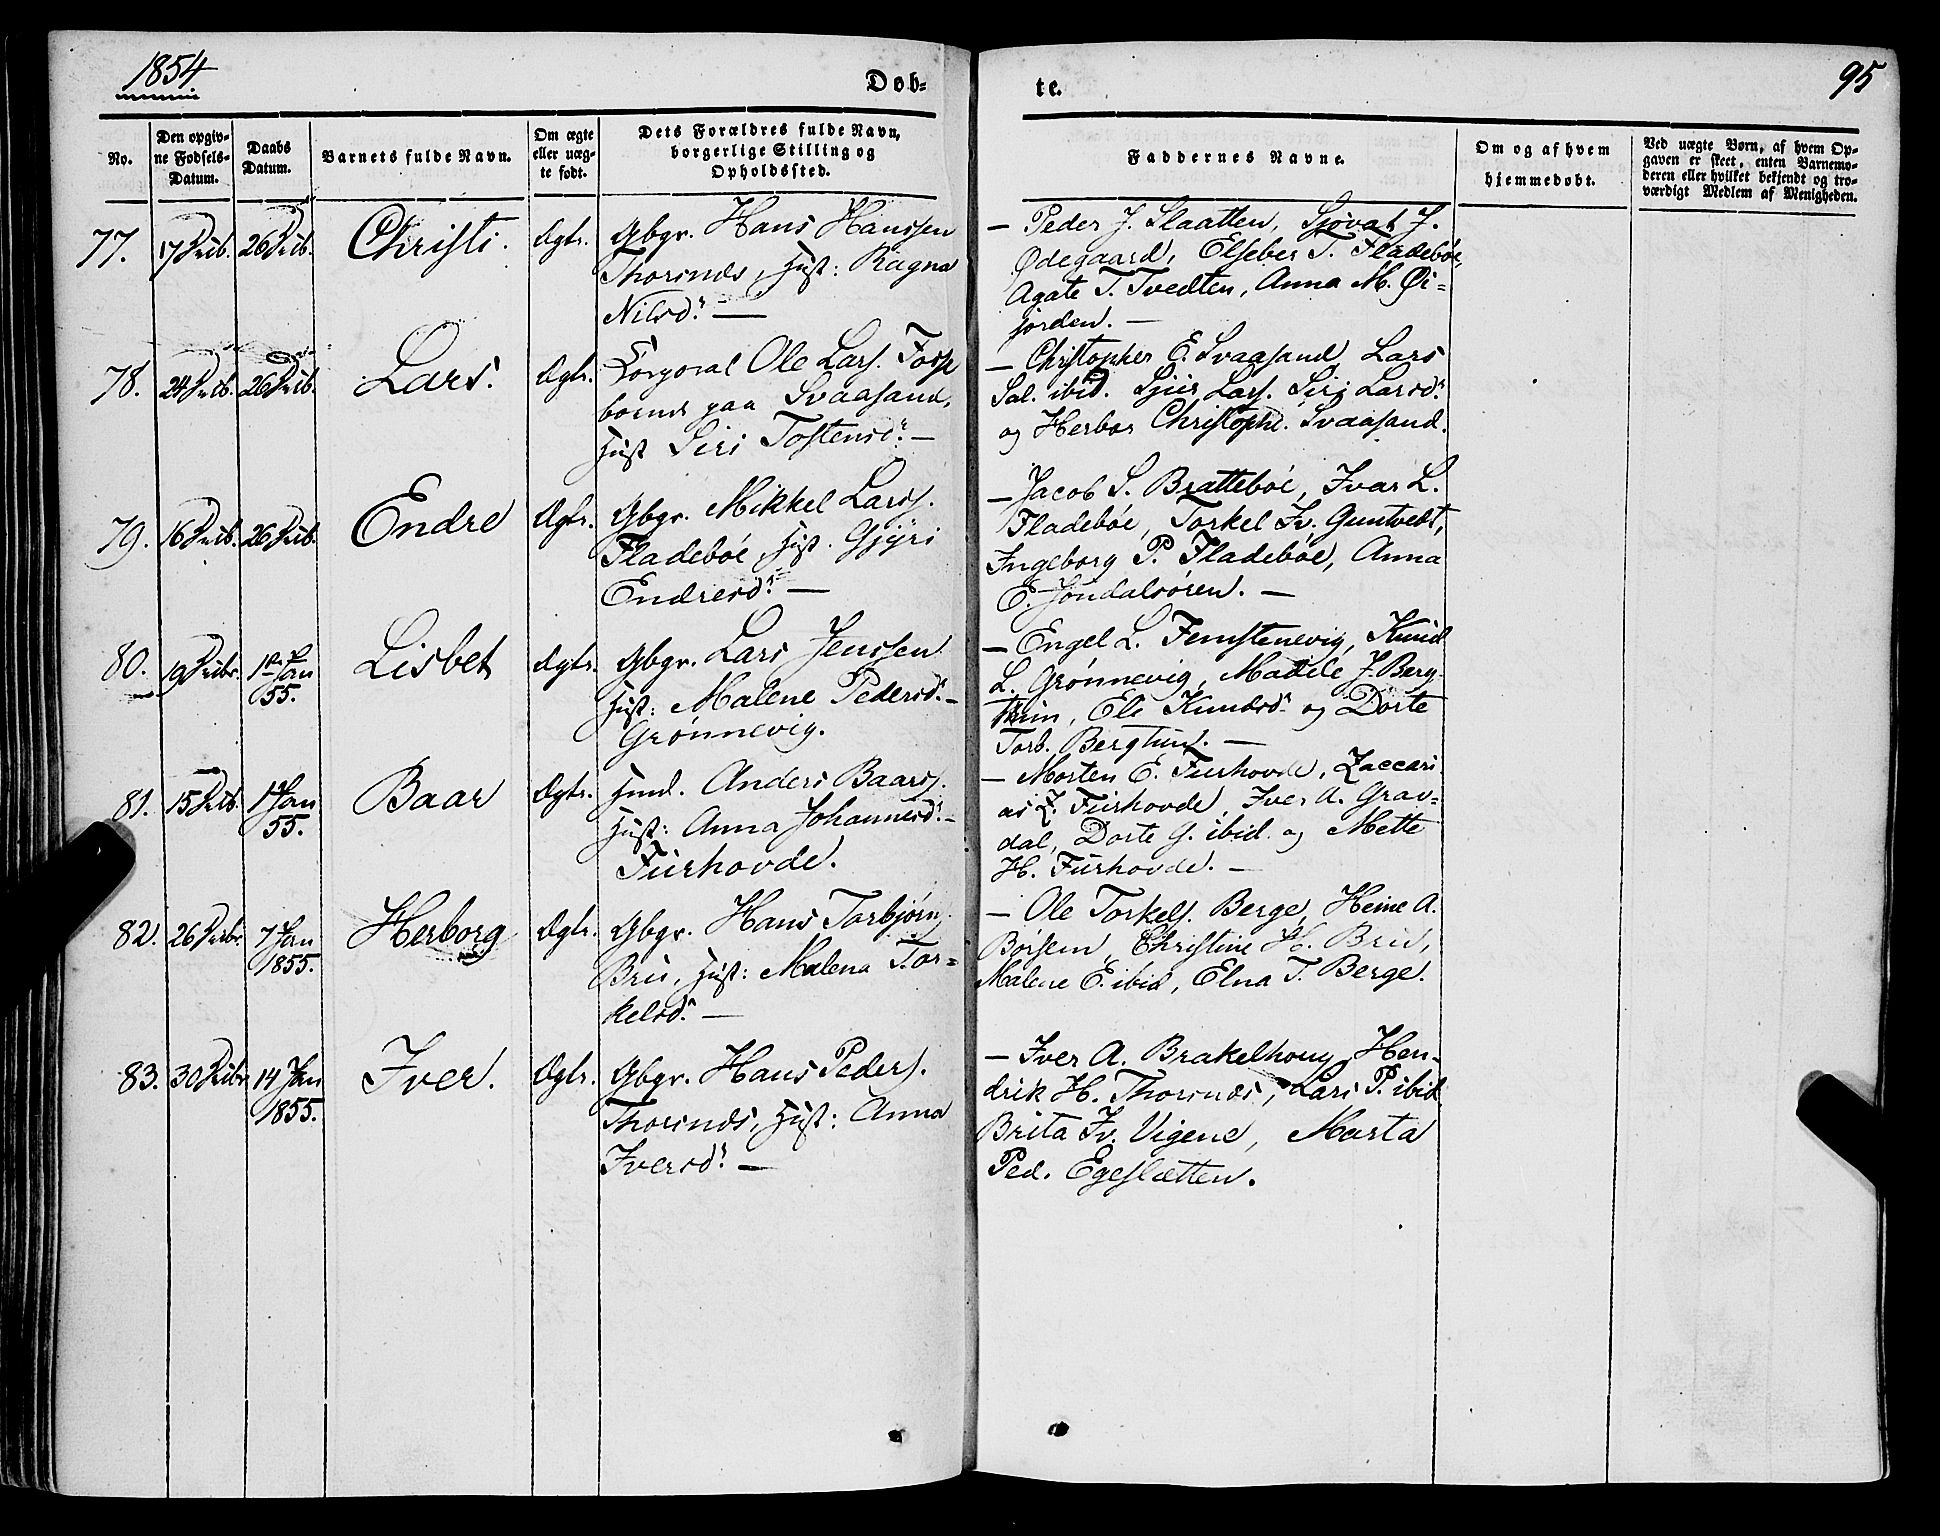 1854
Døb=
te.
95
No.
Den opgiv-
ne Fødsels-
Datum.
Daabs
Datum.
Barnets fulde Navn.
Om ægte
eller uæg-
te født.
Dets Forældres fulde Navn,
borgerlige Stilling og
Opholdssted.
Faddernes Navne.
Om og af hvem
hjemmedøbt.
Ved uægte Børn, af hvem Op-
gaven er skeet, enten Barnemo-
deren eller hvilket bekjendt og tro-
værdigt Medlem af Menigheden.
77. 17 Decb. 26 Decb. Christi. Ægte. Gbgr. Hans Hanssen
Thorsnæs, Hust: Ragna
Nilsd. —
— Peder J. Slaatten, Sjovat J.
Ødegaard, Elseber T. Fladebøe,
Agate T. Tvedten, Anna M. Øi=
jorden. —
78. 24 Decb. 26 Decb. Lars. Ægte. Corporal Ole Lars.
paa Svaasand,
Hust Siri Tostensd. —
— Christopher E. Svaasand, Lars
Sal. ibid. Lars. Siri Larsd.
og Herbor Christoph. Svaasand.
79. 16 Decb. 26 Decb. Endre Ægte. Gbgr. Mikkel Larss.
Fladebøe, Hust. Gjyri
Endresd. —
— Jacob S. Brattebøe, Ivar L.
Fladebøe, Torkel Iv. Guntvedt,
Ingeborg P. Fladebøe, Anna
E. Jondalsøren. —
80. 19 Decbr. 1ste Jan
55. Lisbet Ægte. Gbgr. Lars Jenssen
Hust: Malene Pedersd. —
Grønnevig.
— Engel L. Femstenevig, Knud
L. Grønnevig, Madele J. Berg
thun, Ele Knudsd. og Dorte
Torb. Bergtun. —
81. 15 Decb. 1 Jan
55. Baar Ægte. Huusm. Anders Baars.
Hust: Anna Johannesd. —
Furhovde.
— Morten E. Furhovde, Zaccari
as Z. Furhovde, Iver A. Grav=
dal, Dorte G. ibid. og Mette
H. Furhovde. —
82. 26 Decbr. 7 Jan
1855. Herborg Ægte. Gbgr. Hans Torbjørn.
Bru, Hust: Malena Tor=
kelsd. —
— Ole Torkels. Berge, Heine A.
Børsem, Christine H. Bru,
Malene E. ibid, Elna T. Berge.
83. 30 Decbr 14 Jan
1855. Iver. Ægte. Gbgr. Hans Peders.
Thorsnæs, Hust: Anna
Iversd. —
— Iver A. Brakelhoug, Hen=
drik H. Thorsnæs, Lars P. ibid
Brita Iv. Vigene, Marta
Ped. Egeslætten.